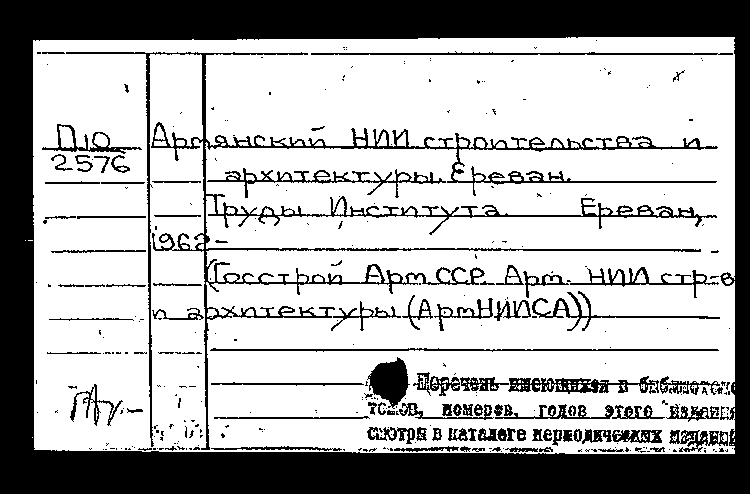 П10
2576
Армянский НИИ строительства и
архитектуры. Ереван.
Труды Института. Ереван,
1962-
(Госстрой Арм.ССР. Арм. НИИ стр-в
и архитектуры (АрмНИИСА))
Перечень имеющихся в библиотеке
томов, номеров, годов этого издания
смотри в каталоге периодических изданий